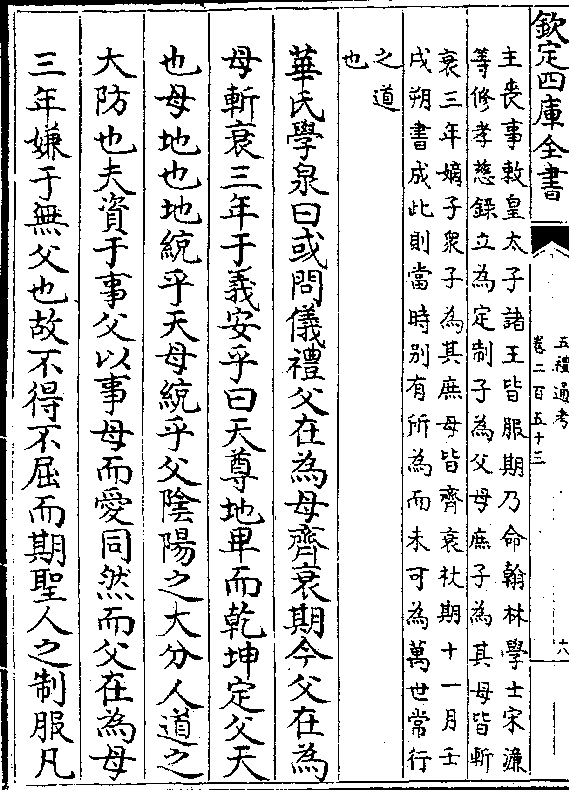 欽定四庫全書
五禮通考
卷二百五十三
六
主喪事敕皇太子諸王皆服期乃命翰林學士宋濂
等修孝慈錄立為定制子為父母庶子為其母皆斬
衰三年嫡子衆子為其庶母皆齊衰杖期十一月壬
戌朔書成此則當時别有所為而未可為萬世常行
之道
也
華氏學泉曰或問儀禮父在為母齊衰期今父在為
母斬衰三年于義安乎曰天尊地卑而乾坤定父天
也母地也地統乎天母統乎父陰陽之大分人道之
大防也夫資于事父以事母而愛同然而父在為母
三年嫌于無父也故不得不屈而期聖人之制服凡